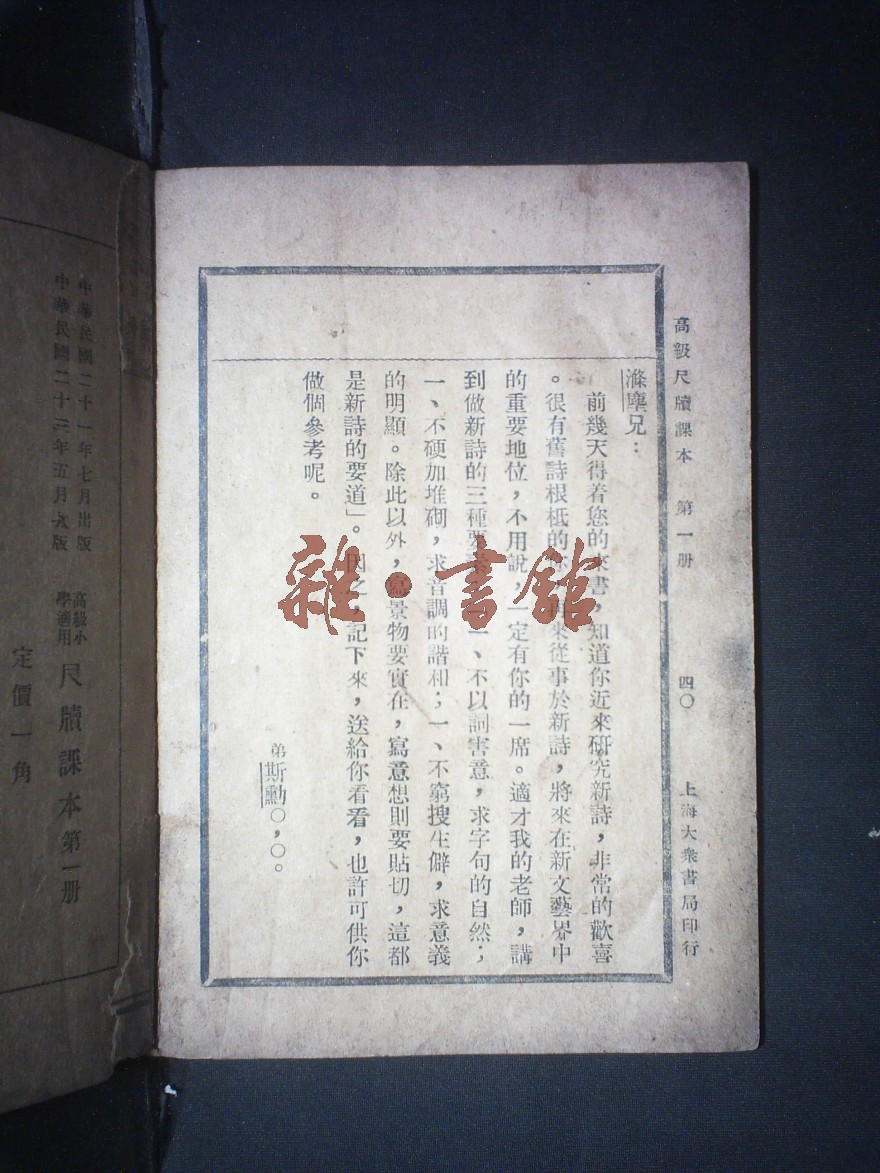 高級尺牘課本 第一册 四〇 上海大衆書局印行
滌塵兄：
前幾天得着您的來書，知道你近來研究新詩，非常的歡喜
。很有舊詩根柢的你，再來從事於新詩，將來在新文藝界中
的重要地位，不用說，一定有你的一席。適才我的老師，講
到做新詩的三種要 一、不以詞害意，求字句的自然；
一、不硬加堆砌，求音調的諧和；一、不窮搜生僻，求意義
的明顯。除此以外，寫景物要實在，寫意想則要貼切，這都
是新詩的要道」。因之，記下來，送給你看看，也許可供你
做個參考呢。
弟斯勳〇，〇。
雜·書館
中華民國二十一年七月出版
中華民國二十三年五月六版
高級小學適用 尺牘課本第一册
定價一角